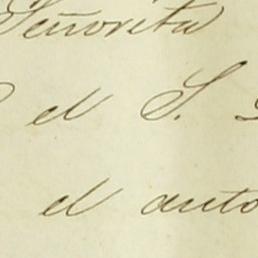 Señorita
el S.
el auto